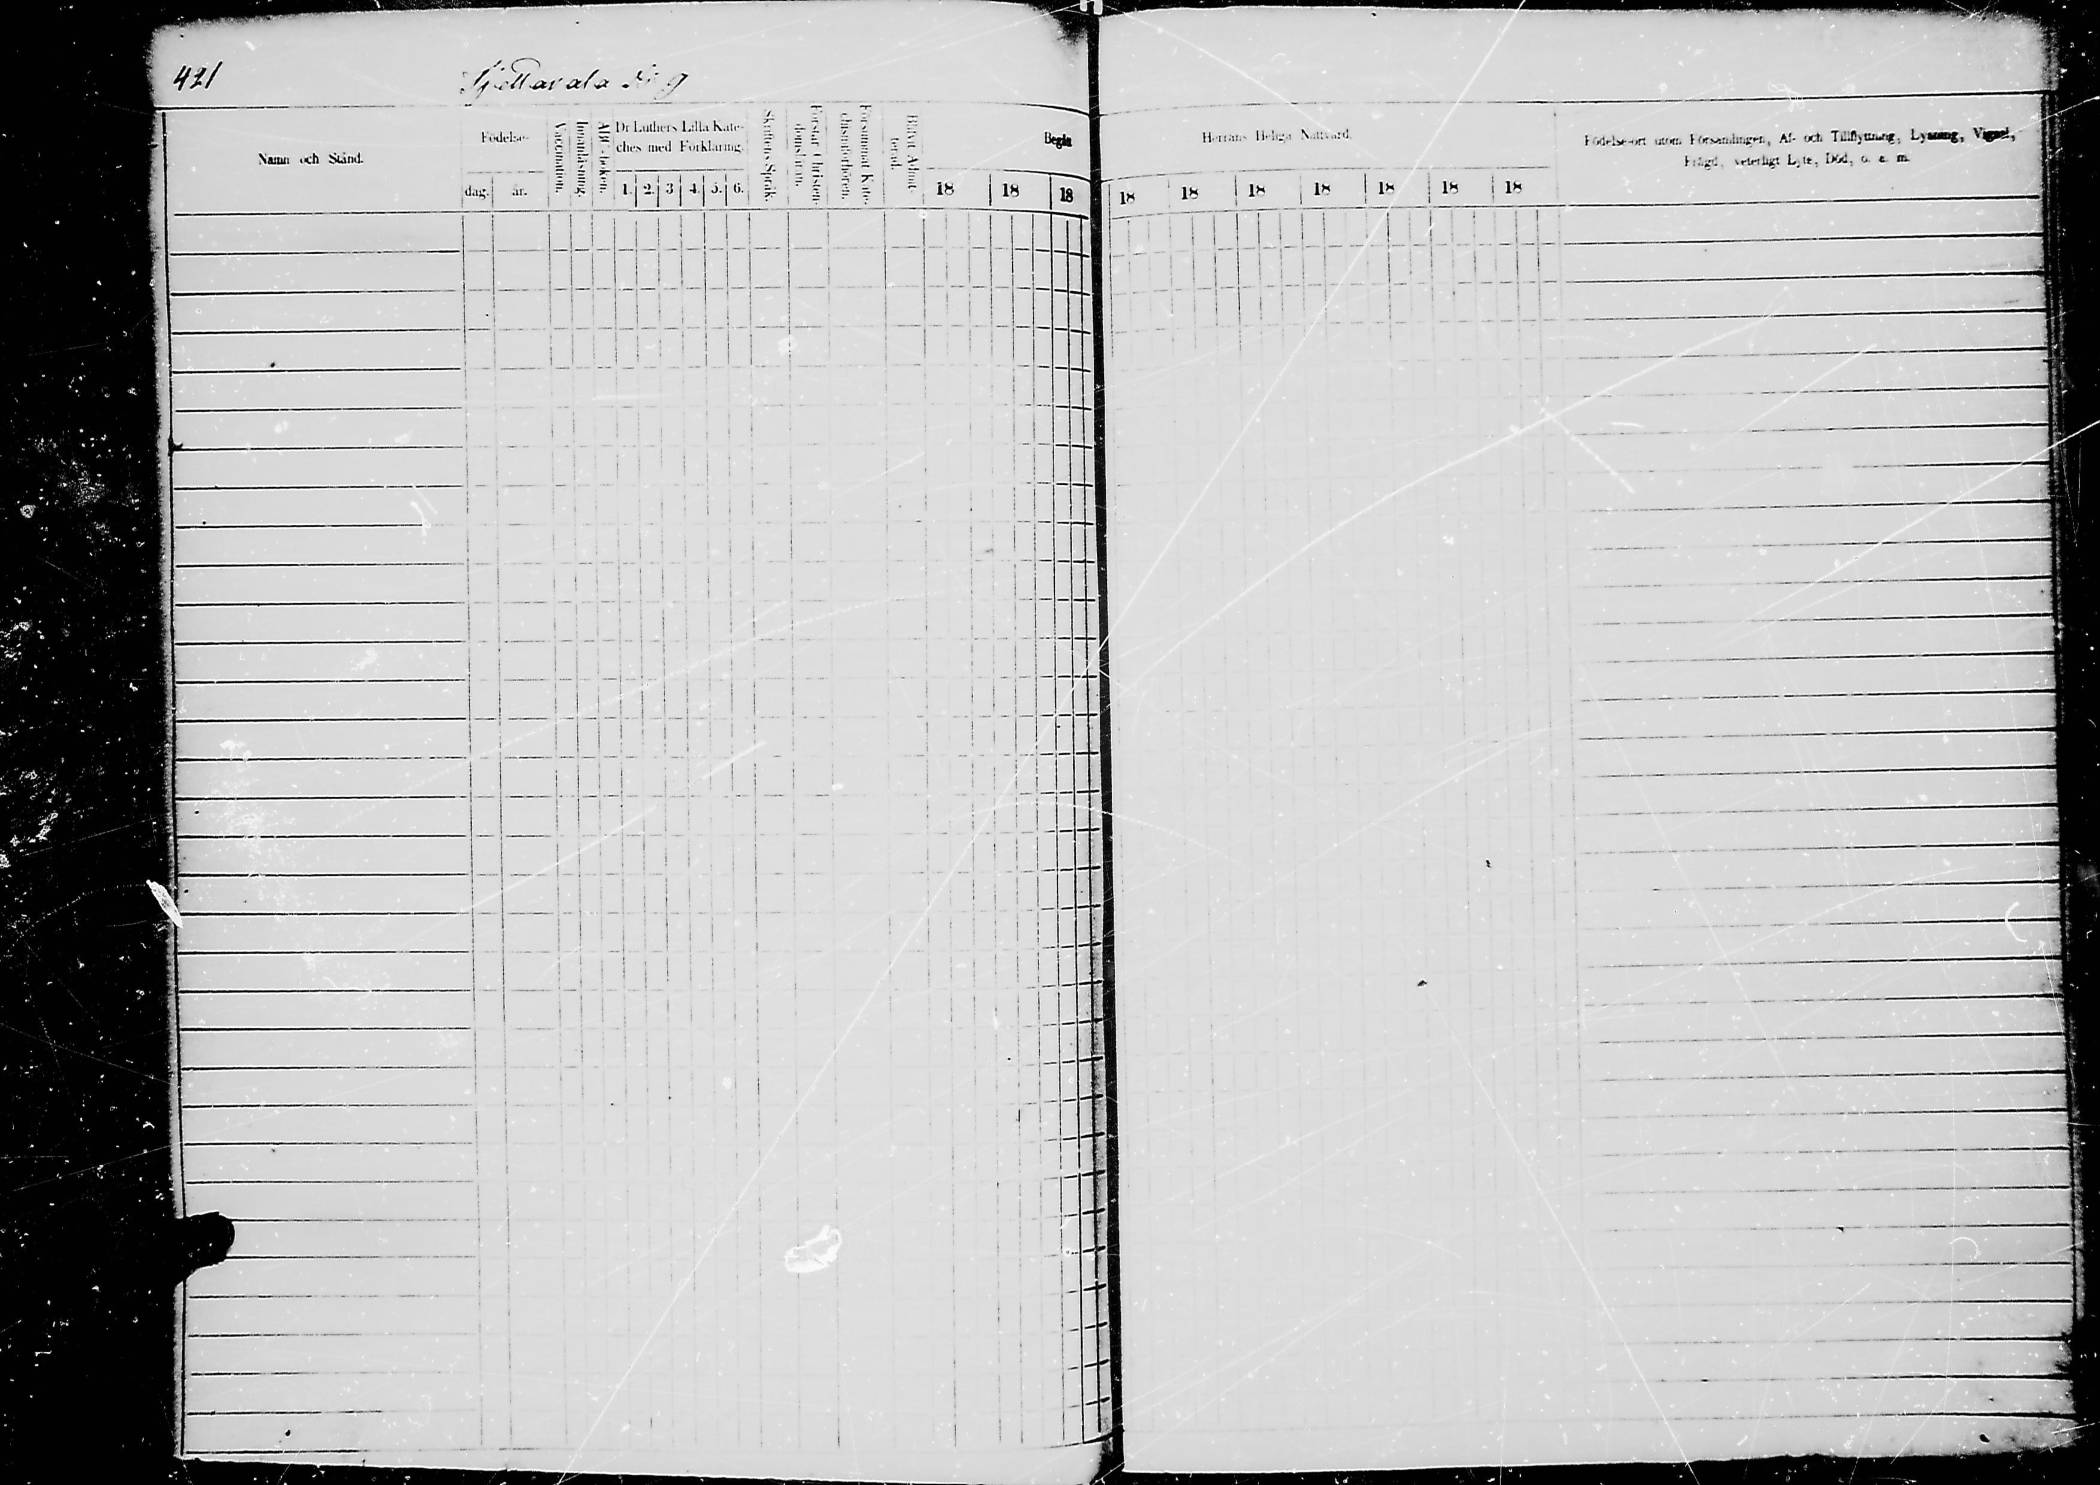 421
No 9
Namn och Stånd.
Födelse-
dag.
år.
Vaccination.
Innanläsning.
ABC-boken.
Dr Luthers Lilla Kate-
ches med Förklaring.
1. 2. 3 4. 5. 6.
Skriftens Språk.
Förstår Christen-
domsläran.
Försummat Kate-
chismiförhören.
Blifvit Admit-
terad.
Begått
18 18 18
Herrans Heliga Nattvard.
18 18 18 18 18 18 18
Födelse-ort utom Församlingen, Af- och Tillflyttning, Lysning, Vigsel,
Frägd, veterligt Lyte, Död, o. s. m.